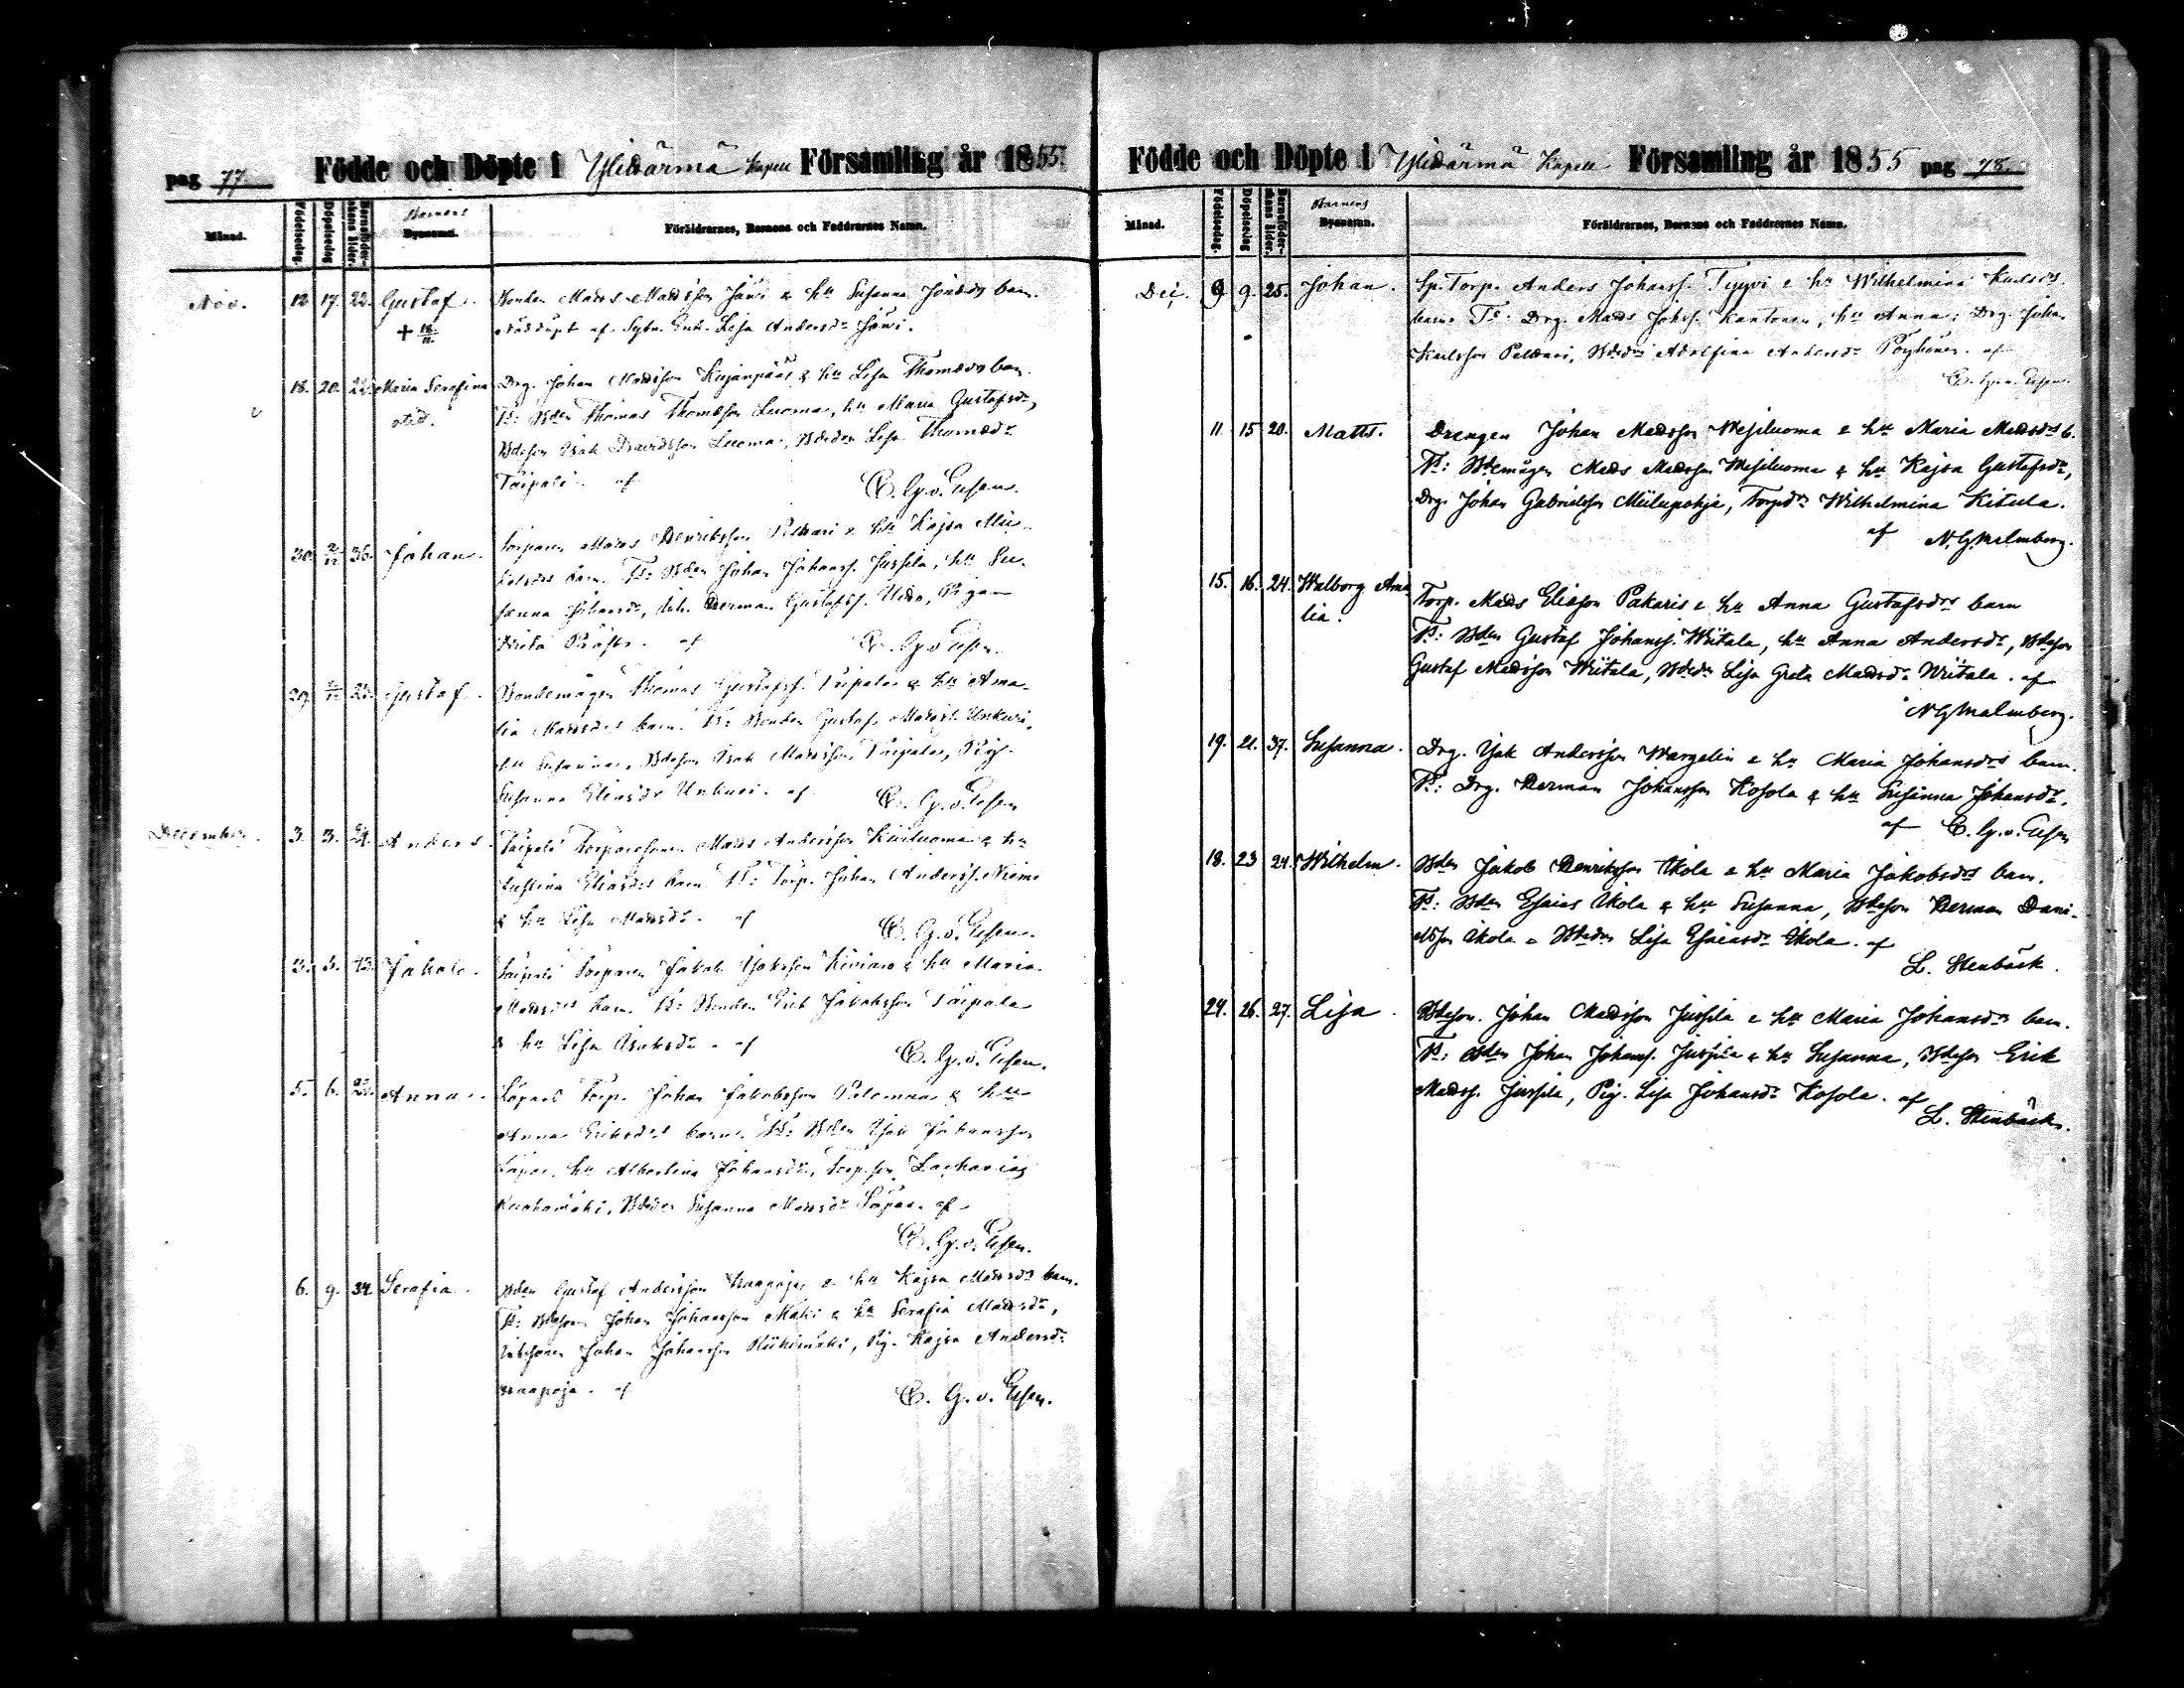 pag 77. Födde och Döpte i Ylidärmä Kapell Församling år 1855.
Månad. Födelsedag. Döpelsedag Barnaföderskans ålder. Barnens Bynamn. Föräldrarnes, Barnens och Faddrarnes Namn.
Nov. 12 17. 22. Gustaf. Bonden Matts Mattsson Järvi & hu Susanna Jonasds barn.
+ 18/11. Nöddöpt af Enk. Lisa Andersdr Järvi.
18. 20. 22. Maria Serafina Drg. Johan Mattsson Kujanpää & hu Lisa Thomasds barn.
F: Bden Thomas Thomasson Luoma, hu Maria Gustafsdr,
Bdeson Isak Davidsson Luoma, Bdedr Lisa Thomasdr
Taipale. af C. G. v. Essen.
30. 2/12 36. Johan. Torparen Matts Henriksson & hu Kajsa Mi-
barn. F: Bden Johan Johanss. Jussila, hu Su-
sanna Johansdr, Herman Gustafss. Pigan
af C. G. v. Essen.
29. 2/12 Gustaf. Bondemågen Thomas Gustafss. Taipale & hu Ama-
lia Mattsds barn. F: Bonden Gustaf Mattss. Unkuri,
hu Susanna, Bdeson Isak Mattsson Taipale, Pig.
Susanna Eliasdr Unkuri. af C. G. v. Essen
December. 3. 3. Anders. Taipale Torparesonen Matts Andersson Kiviluoma & hu
Justina Eliasds barn F: Torp. Johan Anderss. Niemi
& hu Lisa Mattsdr. af C. G. v. Essen.
3. 5. 43. Jakob. Taipale Torparen Jakob Isaksson & hu Maria
Mattsds barn. F: Bonden Erik Jakobsson Taipale
& hu Lisa Isaksdr. af C. G. v. Essen.
5. 6. Anna. Torp. Johan Jakobsson & hu
Anna Eriksds barn. F: Bden Isak Johansson
hu Albertina Johansdr, Torp.son Zacharias
Bdedr Susanna Mattsdr af
C. G. v. Essen.
6. 9. 34. Serafia. Bden Gustaf Andersson Haapoja & hu Kajsa Mattsds barn.
F: Bdeson Johan Johansson Mäki & hu Serafia Mattsdr,
Johan Johansson Riihimäki, Pig. Kajsa Andersdr
Haapoja. af C. G. v. Essen.
Födde och Döpte i Ylidärmä Kapell Församling år 1855 pag 78.
Månad. Födelsedag. Döpelsedag Barnaföderskans ålder. Barnens Bynamn. Föräldrarnes, Barnens och Faddrarnes Namn.
Dec. 9 9. 25. Johan. Sp. Torp. Anders Johanss. Tyyni & hu Wilhelmina Karlsds
barn F: Drg. Matts Johss. Kantonen, hu Anna; Drg. Johan
Karlsson Peldari, Bdedr Adolfina Andersdr Pöyhönen. af
C. G. v. Essen.
11. 15 20. Matts. Drengen Johan Mattsson Wesiluoma & hu Maria Mattsds b.
F: Bdemågen Matts Mattsson Wesiluoma & hu Kajsa Gustafsdr,
Drg. Johan Gabrielsson Miilupohja, Torpdr Wilhelmina Kitula.
af N. G. Malmberg.
15. 16. 24. Walborg Ama- Torp. Matts Eliasson Pakaris & hu Anna Gustafsds barn
lia. F: Bden Gustaf Johanss. Wiitala, hu Anna Andersdr, Bdeson
Gustaf Mattsson Wiitala, Bdedr Lisa Greta Mattsdr Wiitala. af
N G Malmberg.
19. 21. 37. Susanna. Drg. Isak Andersson Wargelin & hu Maria Johansds barn.
F: Drg. Herman Johansson Kosola & hu Susanna Johansdr.
af C. G. v. Essen
18. 23 24. Wilhelm. Bden Jakob Henriksson Ikola & hu Maria Jakobsds barn.
F: Bden Esaias Ikola & hu Susanna, Bdeson Herman Dani-
elsson Ikola & Bdedr Lisa Esaiasdr Ikola. af
L. Stenbäck.
24. 26. 27. Lisa. Bdeson. Johan Mattsson Jussila & hu Maria Johansds barn.
F: Bden Johan Johanss. Jussila & hu Susanna, Bdeson Erik
Mattss. Jussila, Pig. Lisa Johansdr Kosola. af
L. Stenbäck.